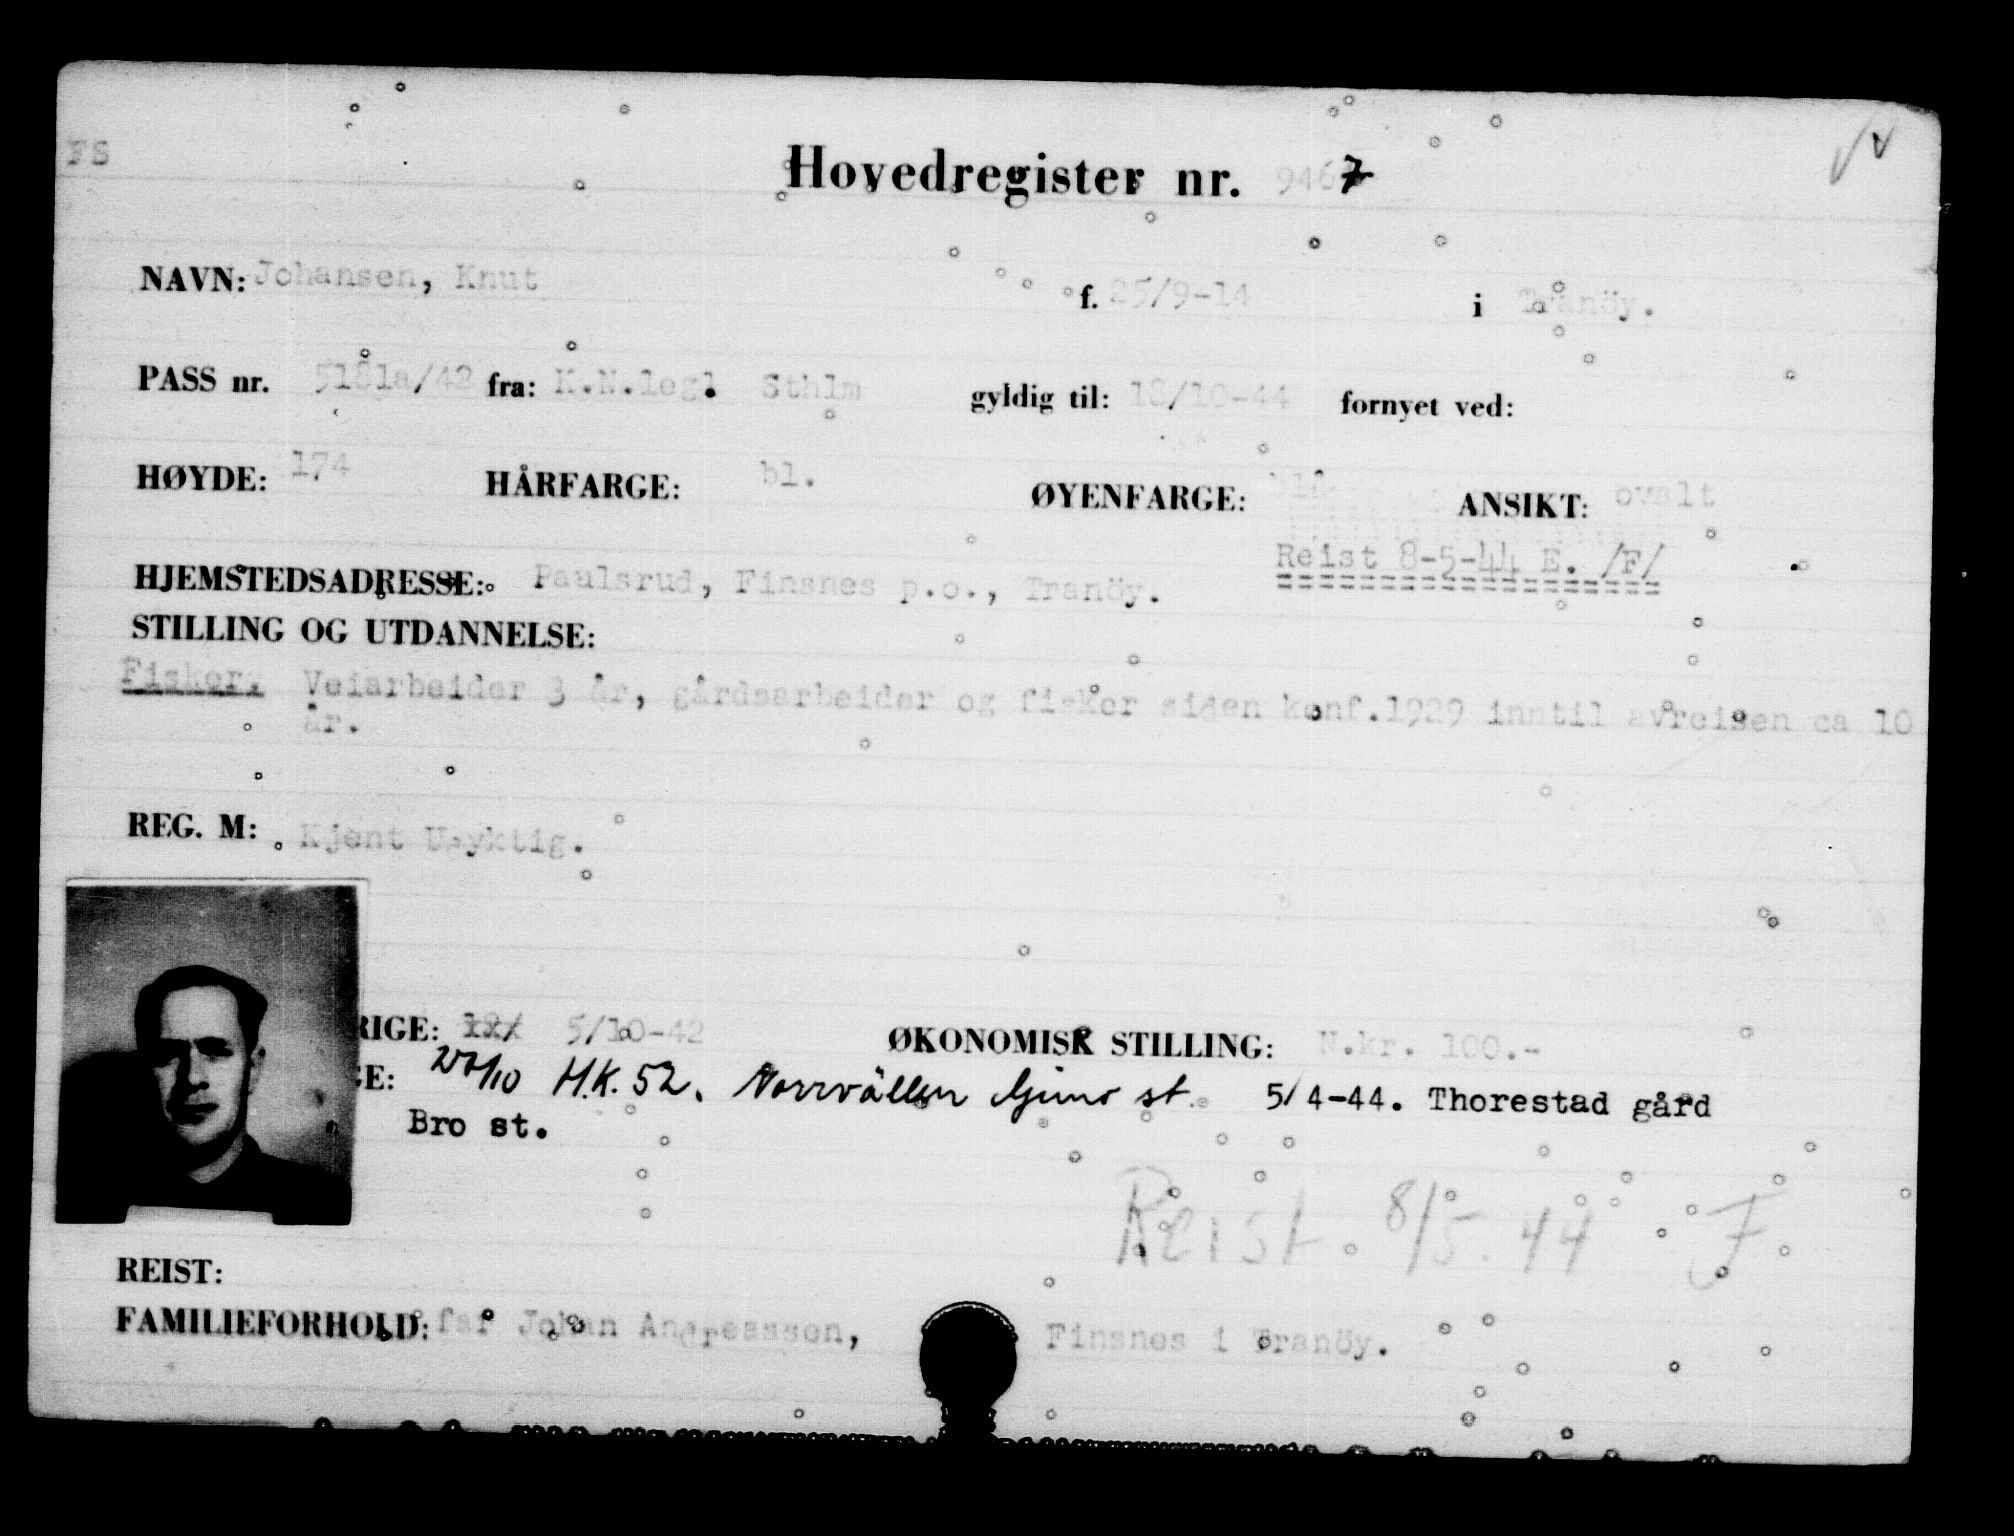 FS
Hovedregister nr. 9467
NAVN: Johansen, Knut f. 25/9-14 i Tranöy.
PASS nr. 5181a/42 fra: K.N.legl. Sthlm gyldig til: 18/10-44 fornyet ved:
HØYDE: 174 HÅRFARGE: bl. ØYENFARGE: blå ANSIKT: ovalt
Reist 8-5-44 E. /F/
HJEMSTEDSADRESSE: Paulsrud, Finsnes p.o., Tranöy.
STILLING OG UTDANNELSE:
Fisker. Veiarbeider 3 år, gårdsarbeider og fisker siden konf.1929 inntil avreisen ca 10
år.
REG. M: Kjent Utyktig.
RIGE: 5/10-42 ØKONOMISK STILLING: N.kr. 100.-
GE: H.K. 52. Norrvällen Gimo st. 5/4-44. Thorestad gård
Bro st.
Reist. 8/5. 44 F
REIST:
FAMILIEFORHOLD: far Johan Andreassen, Finsnes i Tranöy.